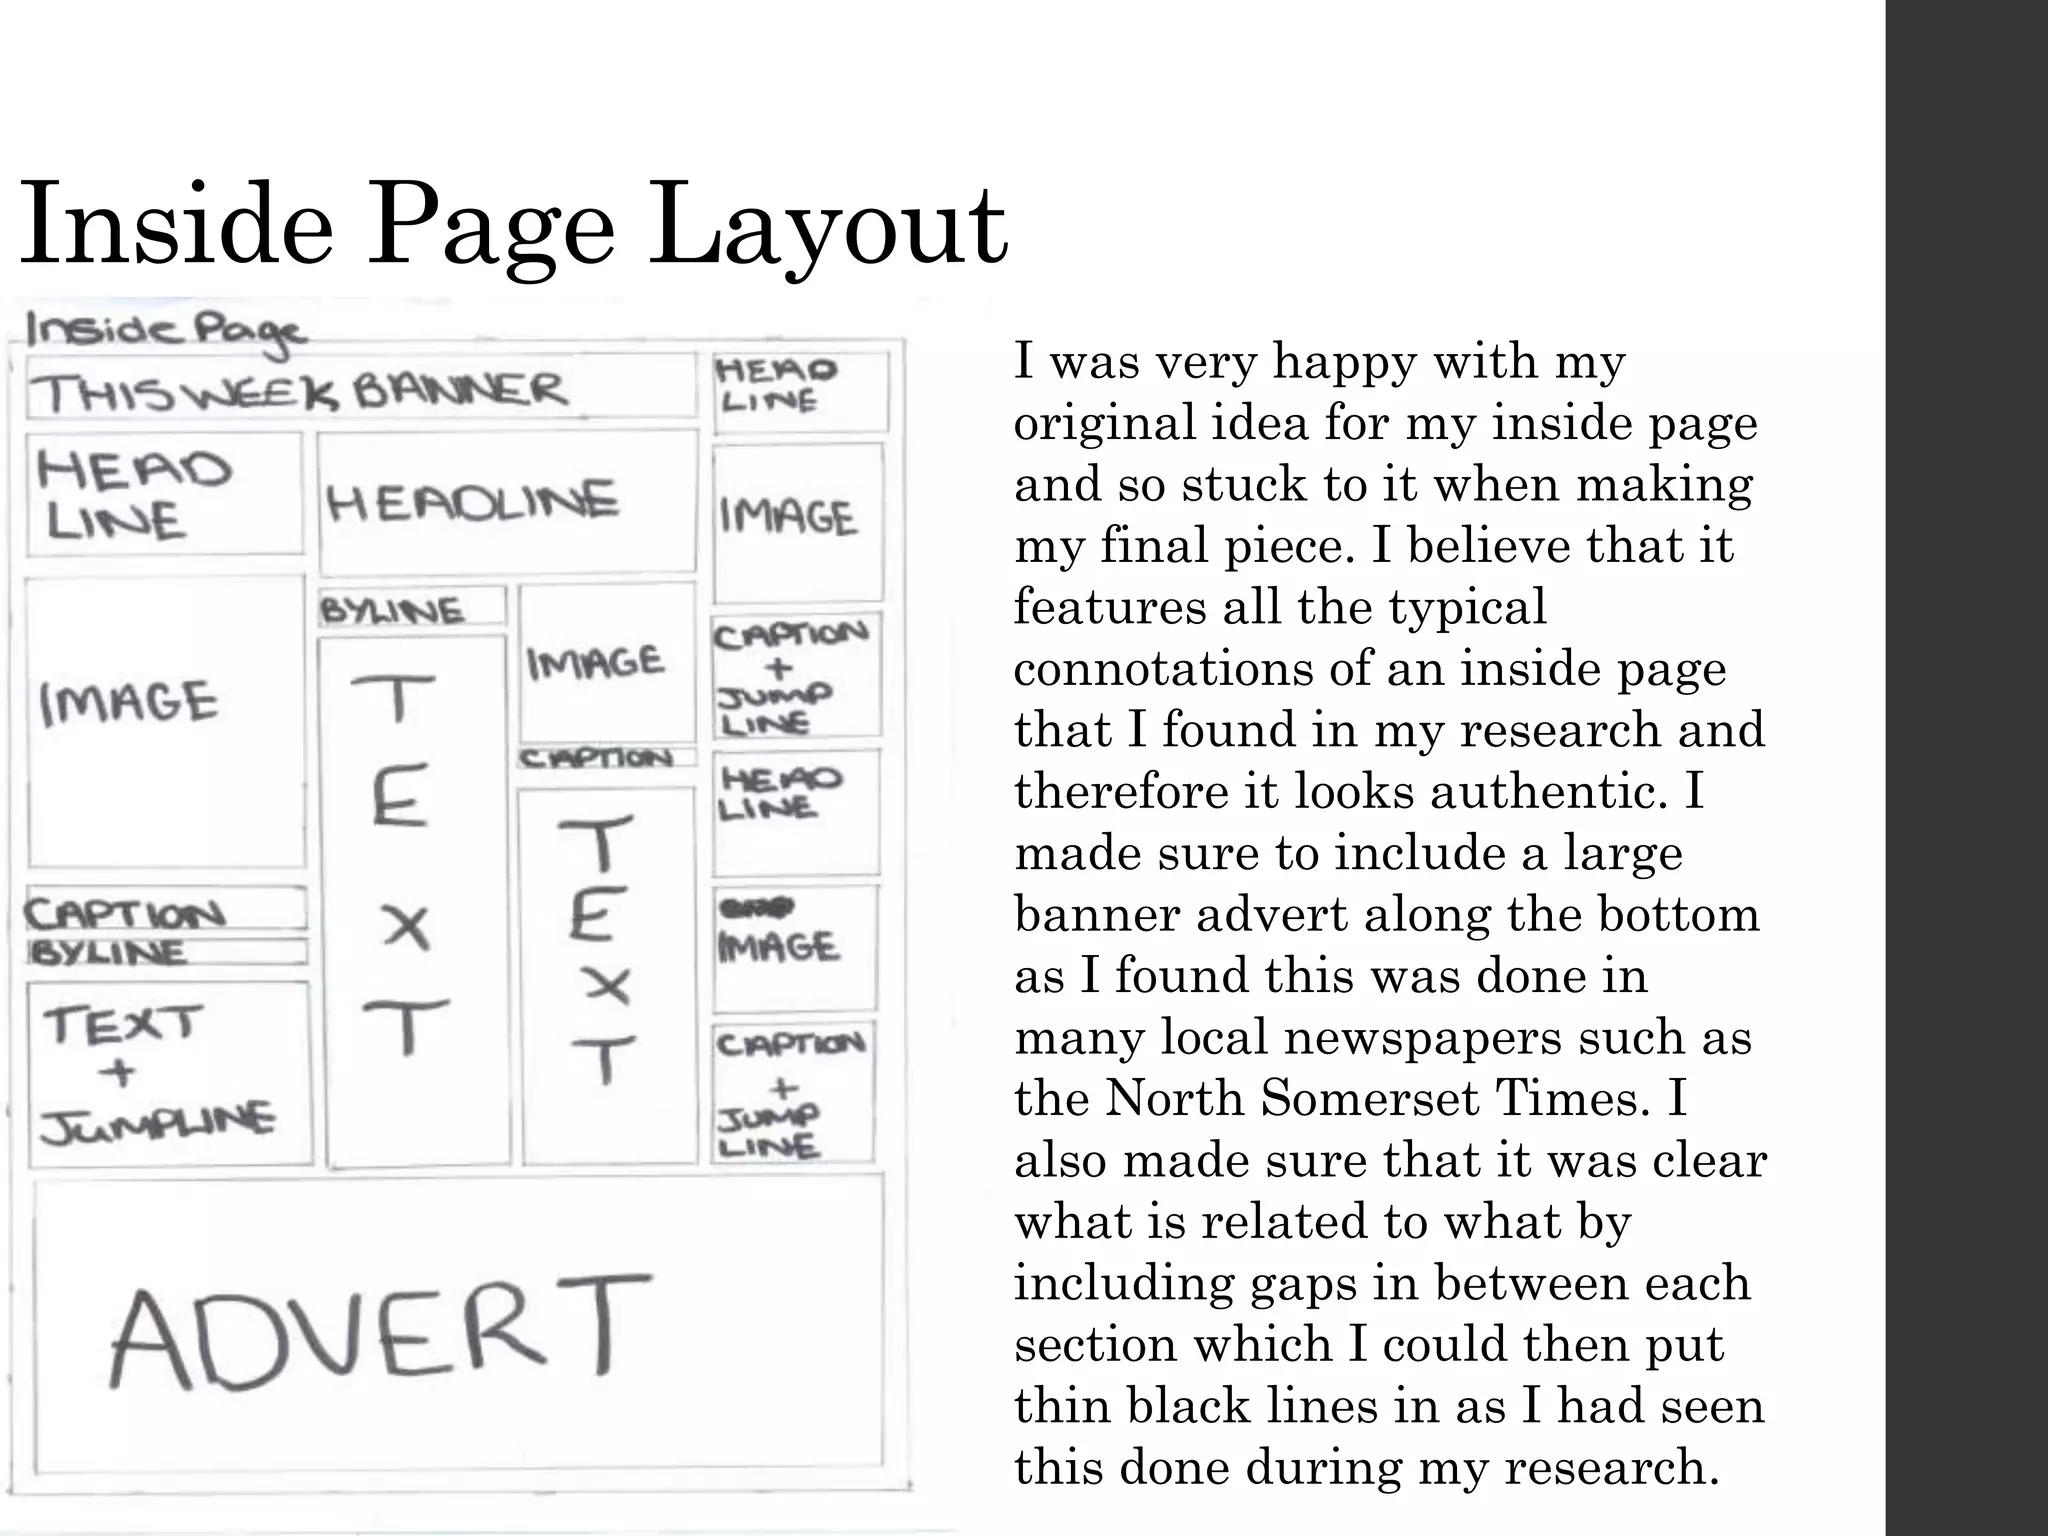 Inside Page Layout
Inside Page
THIS WEEK BANNER
HEAD
LINE
IMAGE
CAPTION
BYLINE
TEXT
+
JUMPLINE
HEADLINE
BYLINE
T
E
X
T
IMAGE
CAPTION
T
E
X
T
HEAD
LINE
IMAGE
CAPTION
+
JUMP
LINE
HEAD
LINE
IMAGE
CAPTION
+
JUMP
LINE
ADVERT
I was very happy with my
original idea for my inside page
and so stuck to it when making
my final piece. I believe that it
features all the typical
connotations of an inside page
that I found in my research and
therefore it looks authentic. I
made sure to include a large
banner advert along the bottom
as I found this was done in
many local newspapers such as
the North Somerset Times. I
also made sure that it was clear
what is related to what by
including gaps in between each
section which I could then put
thin black lines in as I had seen
this done during my research.